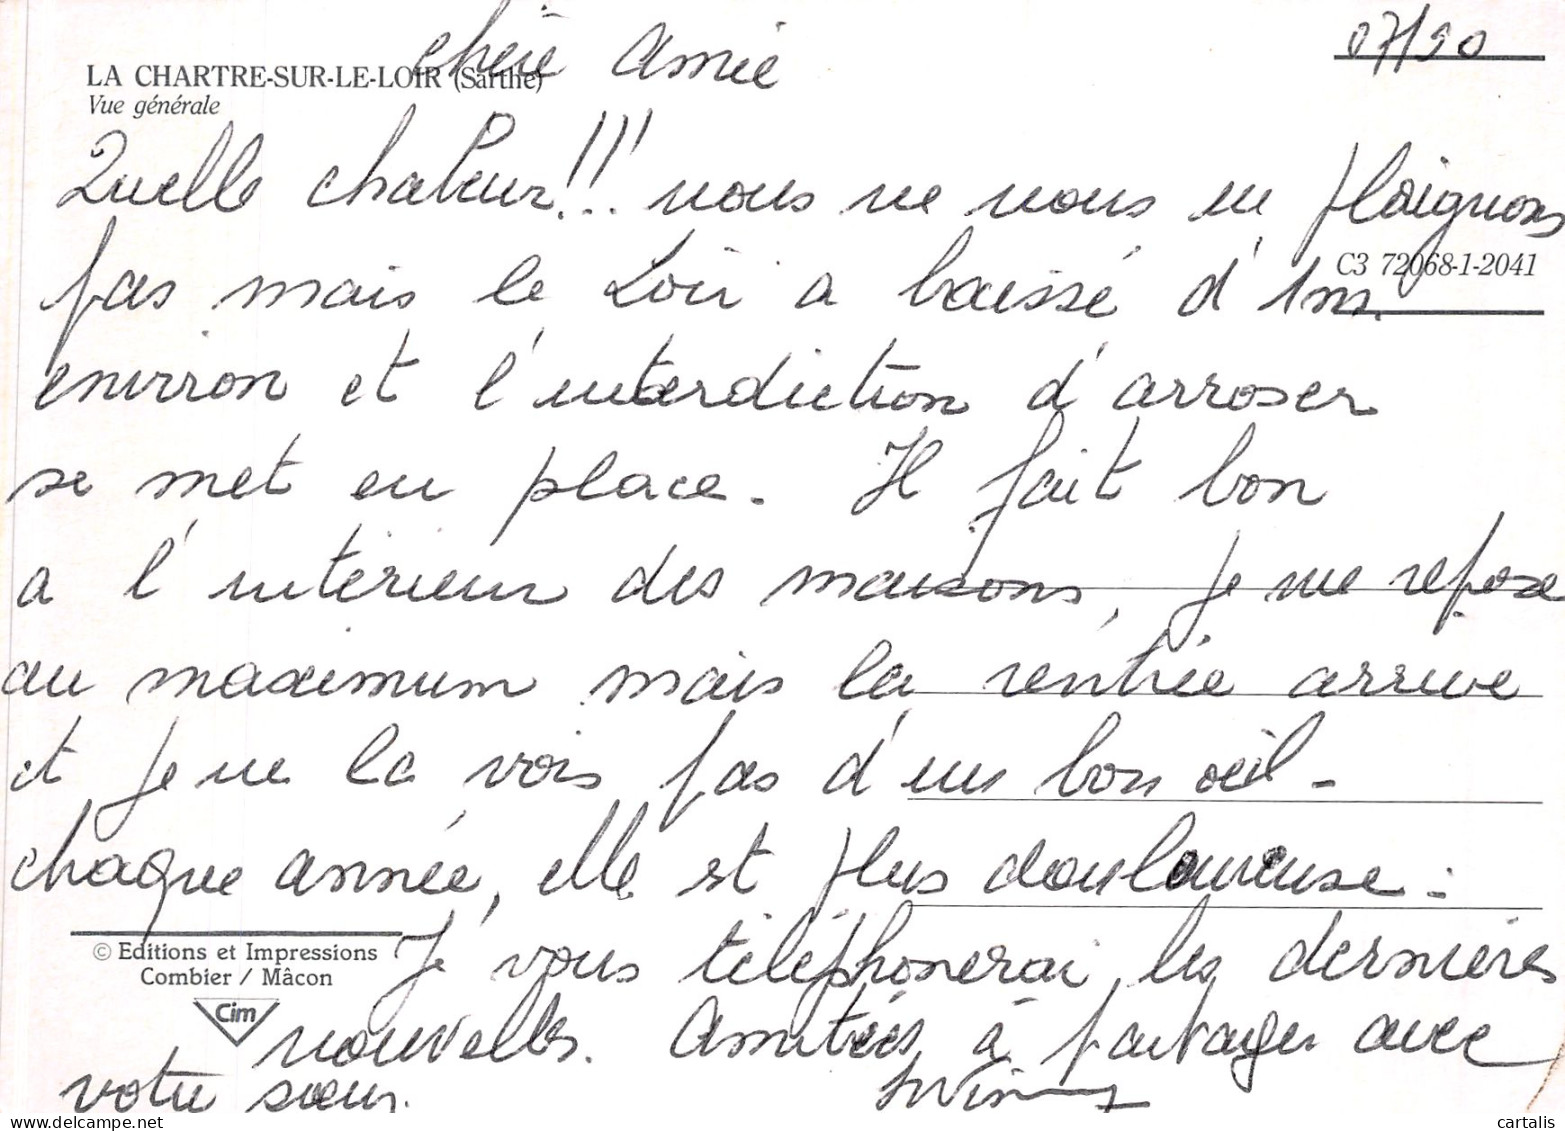 07/90
chère Amie
LA CHARTRE-SUR-LE-LOIR (Sarthe)
Vue générale
Quelle chaleur!!! nous ne nous en plaignons
C3 72068-1-2041
pas mais le Loir a baissé d'1m.
environ et l'interdiction d'arroser
se met en place. Il fait bon
a l'intérieur des maisons, Je me repose
au maximum mais la rentrée arrive
et Je ne la vois pas d'un bon oeil -
chaque année, elle est plus douloureuse :
© Editions et Impressions
Combier / Mâcon
Cim
Je vous téléphonerai les dernières
nouvelles. Amitiés à partager avec
votre soeur.
www.delcampe.net
cartalis